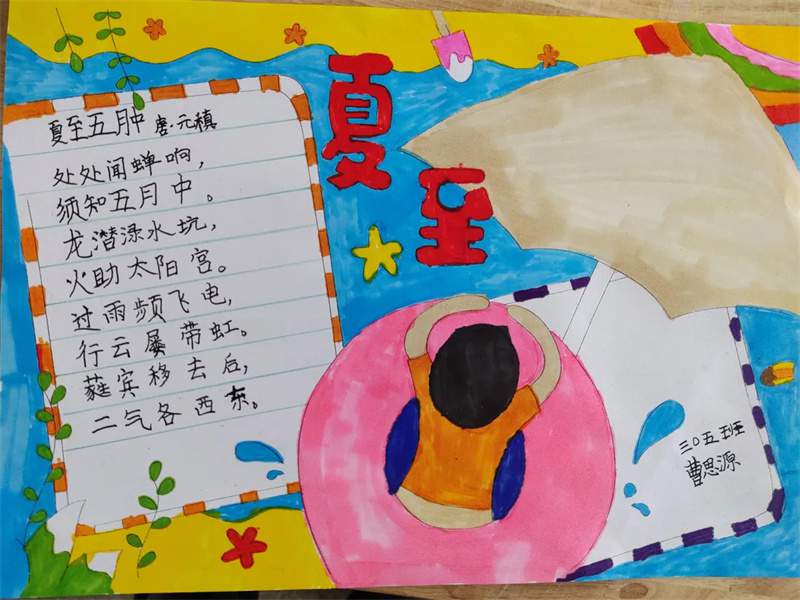 夏至
夏至五月中 唐·元稹
处处闻蝉响，
须知五月中。
龙潜渌水坑，
火助太阳宫。
过雨频飞电，
行云屡带虹。
蕤宾移去后，
二气各西东。
三〇五班
曹思源